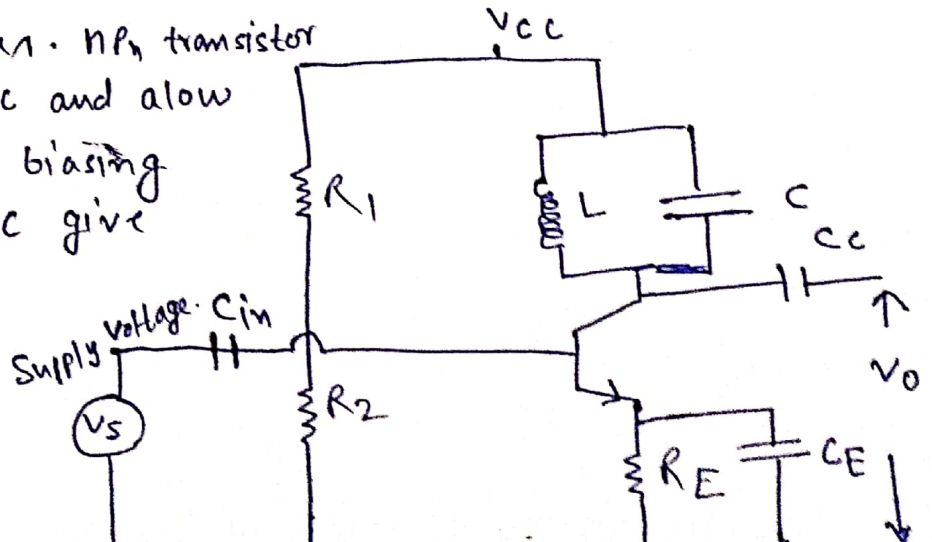 npn transistor
c and alow
biasing
c give
Vcc
R1
L
C
Cc
Supply voltage.
Cin
Vs
R2
Vo
RE
CE